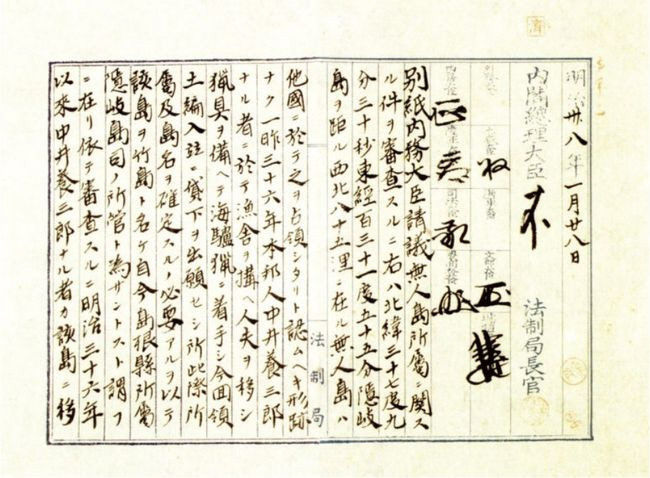 明治卅八年一月廿八日
内閣總理大臣
法制局長官
別紙内務大臣請議無人島所屬ニ関ス
ル件ヲ審査スルニ右ハ北緯三十七度九
分三十秒東經百三十一度五十五分隠岐
島ヲ距ル西北八十五浬ニ在ル無人島ハ
他國ニ於テ之ヲ占領シタリト認ムヘキ形跡
ナク一昨三十六年本邦人中井養三郎
ナル者ニ於テ漁舎ヲ構ヘ人夫ヲ移シ
猟具ヲ備ヘテ海驢猟ニ着手シ今回領
土編入並ニ貸下ヲ出願セシ所此際所
屬及島名ヲ確定スルノ必要アルヲ以テ
該島ヲ竹島ト名ケ自今島根縣所屬
隠岐島司ノ所管ト為サントスト謂フ
ニ在リ依テ審査スルニ明治三十六年
以来中井養三郎ナル者カ該島ニ移
法制局